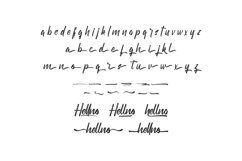 a b c d e f g h i j k l m n o p q r s t u v w x y z
a b c d e f g h i j k l
m n o p q r s t u v w x y z
Hellno Hellno hellno
hellno hellno